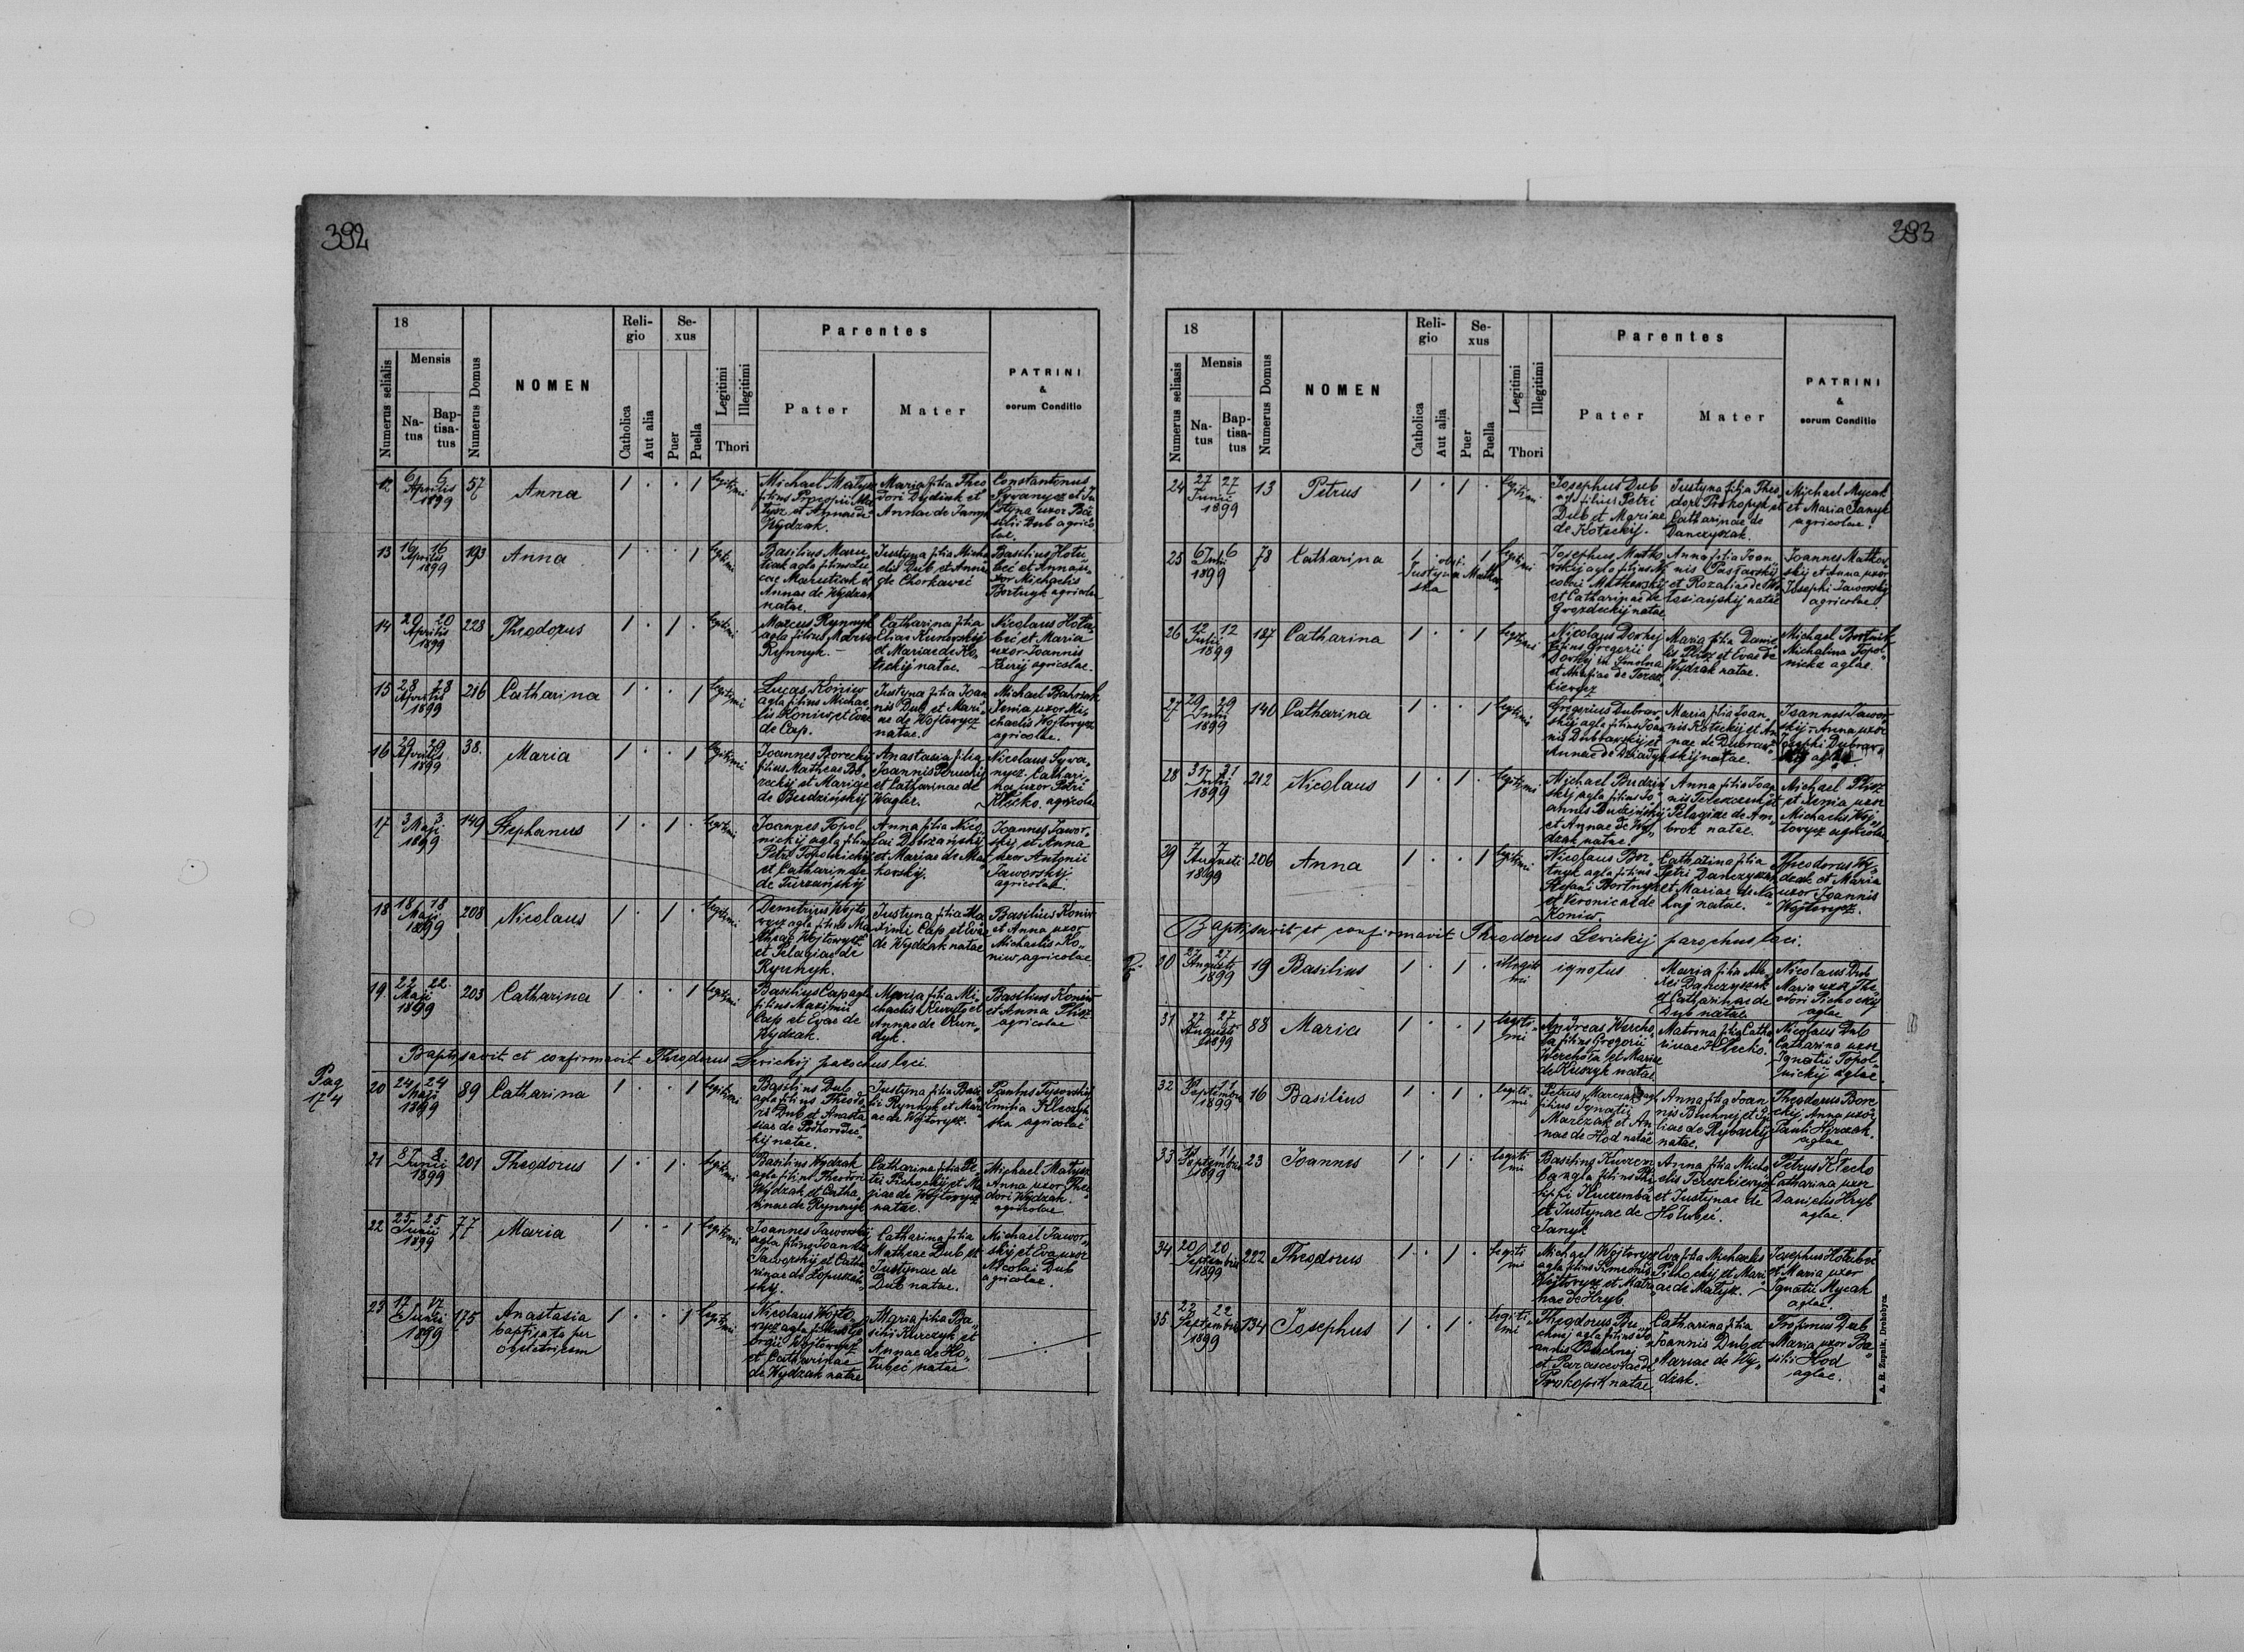 392
18
Numerus serialis
Mensis
Na-
tus
Bap-
tisa-
tus
Numerus Domus
NOMEN
Reli-
gio
Catholica
Aut alia
Se-
xus
Puer
Puella
Legitimi
Illegitimi
Thori
Parentes
Pater
Mater
PATRINI
&
eorum Conditio
12 6 6 Aprilis 1899 57 Anna 1 . . 1 legitimi
Michael Matysz
filius Procopii Ma
tysz et Annae de
Wydzak.
Maria filia Theo
dori Dydiak et
Annae de Janyk
Constantinus
Sywanycz et Ju
styna uxor Ba
silii Dub agrico
lae.
13 16 16 Aprilis 1899 193 Anna 1 . . 1 legitimi
Basilius Maru
tiak agla filius Lu
cae Marutiak et
Annae de Wydzak
natae.
Justyna filia Micha
elis Dub et Annae
de Chorkaweć
Basilius Hołu
beć et Anna u
xor Michaelis
Bortnyk agricolae
14 20 20 Aprilis 1899 228 Theodorus 1 . 1 . legitimi
Marcus Rynnyk
agla filius Mariae
Rynnyk. —
Catharina filia
Eliae Kunowskij
et Mariae de Ko
teckij natae.
Nicolaus Hołu
beć et Maria
uxor Joannis
agricolae.
15 28 28 Aprilis 1899 216 Catharina 1 . . 1 legitimi
Lucas Koniw
agla filius Michae
lis Koniw et Evae
de Cap.
Justyna filia Joan
nis Dub et Mari
ae de Wojtowycz
natae.
Michael
Xenia uxor Mi
chaelis Wojtowycz
agricolae.
16 29 29 Aprilis 1899 38. Maria 1 . . 1 legitimi
Joannes Boreckij
filius Matheae Bo
reckij et Mariae
de Berdzińskij
Anastasia filia
Joannis
et Catharinae de
Wagler.
Nicolaus Sywa
nycz Cathari
na uxor Petri
Klecko. agricolae
17 3 3 Maji 1899 149 Stephanus 1 . 1 . legitimi
Joannes Topol
nickij agla filius
Petri Topolnickij
et Catharinae
de Turzańskij
Anna filia Nico
lai Dobrzańskij
et Mariae de Ma
kowskij.
Joannes Jawor
skij et Anna
uxor Antonii
Jaworskij
agricolae.
18 18 18 Maji 1899 208 Nicolaus 1 . 1 . legitimi
Demetrius Wojto
wycz agla filius Ma
theae Wojtowycz
et Pelagiae de
Rynnyk.
Justyna filia Ma
ximi Cap et Evae
de Wydzak natae
Basilius Koniw
et Anna uxor
Michaelis Ko
niw agricolae
19 22 22 Maji 1899 203 Catharina 1 . . 1 legitimi
Basilius Cap agla
filius Maximi
Cap et Evae de
Wydzak.
Maria filia Mi
chaelis et
Annae de
dyk.
Basilius Koniw
et Anna Plisz
agricolae
Baptisavit et confirmavit Theodorus Lewickij parochus loci.
Pag
174
20 24 24 Maji 1899 89 Catharina 1 . . 1 legitimi
Basilius Dub
agla filius Theodo
ri Dub et Anasta
siae de Podhorodec
kij natae.
Justyna filia Basi
lii Rynnyk et Mari
ae de Wojtowycz.
Paulus Tysowskij
Emilia
ska agricolae
21 8 8 Junii 1899 201 Theodorus 1 . 1 . legitimi
Basilius Wydzak
agla filius Theodori
Wydzak et Catha
rinae de Rynnyk
Catharina filia Pe
tri Pichockij et Ma
riae de Wojtowycz
natae.
Michael Matysz
Anna uxor Theo
dori Wydzak
agricolae
22 25 25 Junii 1899 77 Maria 1 . . 1 legitimi
Joannes Jaworskij
agla filius Joannis
Jaworskij et Catha
rinae de Łopuszań
skij.
Catharina filia
Matheae Dub et
Justynae de
Dub natae.
Michael Jawor
skij et Eva uxor
Nicolai Dub
agricolae.
23 17 17 Junii 1899 175 Anastasia
baptisata per
obstetricem 1 . . 1 legitimi
Nicolaus Wojto
wycz agla filius
Wojtowycz
et Catharinae
de Wydzak natae
Maria filia Ba
silii Kurczyk et
Annae de Ho
łubeć natae
393
18
Numerus seriasis
Mensis
Na-
tus
Bap-
tisa-
tus
Numerus Domus
NOMEN
Reli-
gio
Catholica
Aut alia
Se-
xus
Puer
Puella
Legitimi
Illegitimi
Thori
Parentes
Pater
Mater
PATRINI
&
eorum Conditio
24 27 27 Junii 1899 13 Petrus 1 . 1 . legitimi
Josephus Dub
agla filius Petri
Dub et Mariae
de Koteckij.
Justyna filia Theo
dori Prokopyk et
Catharinae de
Danczyszak.
Michael Mycak
et Maria Janyk
agricolae.
25 6 6 Julii 1899 78 Catharina 1 . 1 obst.
Justyna Matkow
ska legitimi
Josephus Matko
wskij agla filius
Matkowskij
et Catharinae de
Grozdeckij natae
Anna filia Joan
nis
et Rozaliae de
natae
Joannes Matkow
skij et Anna uxor
Josephi Jaworskij
agricolae.
26 12 12 Julii 1899 187 Catharina 1 . . 1 legitimi
Nicolaus
filius Gregorii
in Smolna
et Mariae de Teresz
kiewycz
Maria filia Danie
lis Plisz et Evae de
Wydzak natae.
Michael Bortnik
Michalina Topol
nicka aglae.
27 29 29 Julii 1899 140 Catharina 1 . . 1 legitimi
Gregorius Dubraw
skij agla filius Joan
nis Dubrawskij et
Annae de Dziadyk
Maria filia Joan
nis Koteckij et An
nae de Dubraw
skij natae.
Joannes Jawor
skij Anna uxor
Josephi Dubraw
skij aglae.
28 31 31 Julii 1899 212 Nicolaus 1 . 1 . legitimi
Michael Budziń
skij agla filius Jo
annis Budzińskij
et Annae de Wy
dzak natae.
Anna filia Joan
nis et
Pelagiae de Am
broż natae.
Michael Plisz
et Xenia uxor
Michaelis Woj
towycz agricolae
29 7 7 Augusti 1899 206 Anna 1 . . 1 legitimi
Nicolaus Bor
tnyk agla filius
Stefani Bortnyk
et Veronicae de
Koniw.
Catharina filia
Petri Danczyszak
et Mariae de Na
huj natae.
Theodorus Wy
dzak et Maria
uxor Joannis
Wojtowycz.
Baptisavit et confirmavit Theodorus Lewickij parochus loci.
30 27 27 Augusti 1899 19 Basilius 1 . 1 . illegiti
mi
ignotus
Maria filia
Danczyszak
et Catharinae de
Dub natae
Nicolaus Dub
Maria uxor The
odori Pichockij
aglae
31 27 27 Augusti 1899 88 Maria 1 . . 1 legiti
mi
Andreas Wercho
ła filius Gregorii
Werchoła et Mariae
de Kuszyk natae
Matrona filia Catha
rinae Klecko.
Nicolaus Dub
Catharina uxor
Ignatii Topol
nickij aglae.
32 11 11 Septembris 1899 16 Basilius 1 . 1 . legiti
mi
Petrus Marczak agla
filius Ignatii
Marczak et An
nae de Hod natae
Anna filia Joan
nis Buchnij et Ju
liae de Rybackij
natae.
Theodorus Bore
ckij Anna uxor
Pauli Hirczak.
aglae
33 11 11 Septembris 1899 23 Joannes 1 . 1 . legiti
mi
Basilius Kuczem
ba agla filius Phi
lippi Kuczemba
et Justynae de
Janyk
Anna filia Micha
elis Tereszkiewycz
et Justynae de
Hołubeć.
Petrus Klecko
Catharina uxor
Danielis Hryb
aglae.
34 20 20 Septembris 1899 222 Theodorus 1 . 1 . legiti
mi
Michael Wojtowycz
agla filius Simeonis
Wojtowycz et Matro
nae de Hryb.
Eva filia Michaelis
Pichockij et Mari
ae de Matysz.
Josephus Hołubeć
et Maria uxor
Ignatii Mycak
aglae.
35 22 22 Septembris 1899 134 Josephus 1 . 1 . legiti
mi
Theodorus Bu
chnij agla filius Jo
annis Buchnij
et Parascevae de
Prokopik natae
Catharina filia
Joannis Dub et
Mariae de Wy
dzak.
Trofimus Dub
Maria uxor Ba
silii Hod
aglae.
A. H. Żupnik, Drohobycz